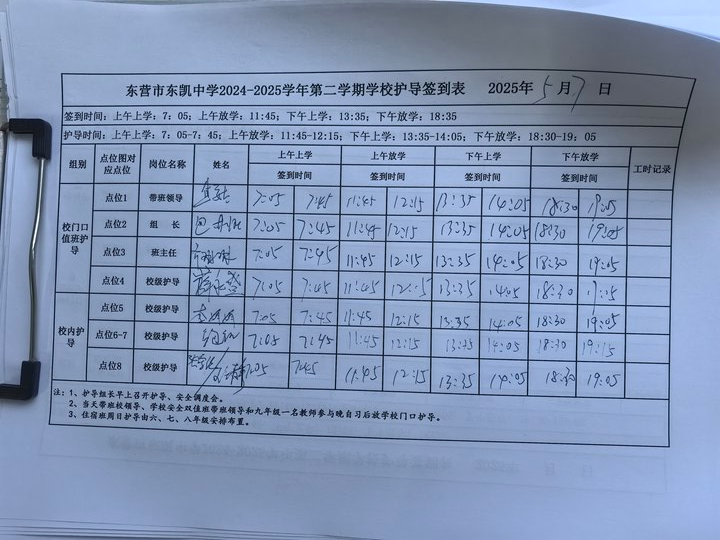 东营市东凯中学2024-2025学年第二学期学校护导签到表 2025年5月7日
签到时间：上午上学：7：05；上午放学：11:45；下午上学：13:35；下午放学：18:35
护导时间：上午上学：7：05-7：45；上午放学：11:45-12:15；下午上学：13:35-14:05；下午放学：18:30-19：05
组别 点位图对应点位 岗位名称 姓名 上午上学 上午放学 下午上学 下午放学 工时记录
签到时间 签到时间 签到时间 签到时间
校门口值班护导
点位1 带班领导 7:05 7:45 11:45 12:15 13:35 14:05 18:30 19:05
点位2 组 长 7:05 7:45 11:45 12:15 13:35 14:05 18:30 19:05
点位3 班主任 7:05 7:45 11:45 12:15 13:35 14:05 18:30 19:05
点位4 校级护导 7:05 7:45 11:45 12:15 13:35 14:05 18:30 19:15
校内护导
点位5 校级护导 7:05 7:45 11:45 12:15 13:35 14:05 18:30 19:05
点位6-7 校级护导 7:05 7:45 11:45 12:15 13:35 14:05 18:30 19:15
点位8 校级护导 7:05 7:45 11:45 12:15 13:35 14:05 18:30 19:05
注：1、护导组长早上召开护导、安全调度会。
2、当天带班校领导、学校安全双值班带班领导和九年级一名教师参与晚自习后放学校门口护导。
3、住宿班周日护导由六、七、八年级安排布置。